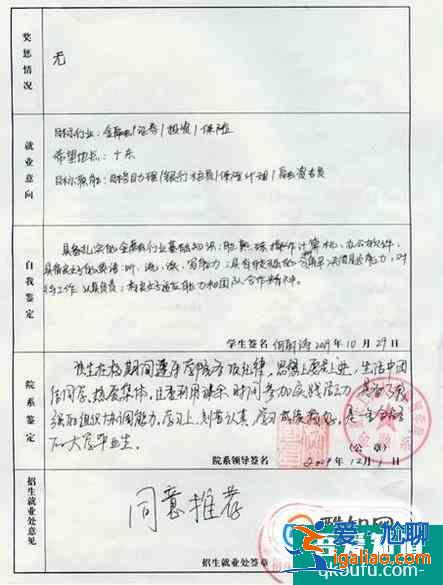 奖惩情况
无
就业意向
目标行业:金融业/证券/投资/保险
希望地点:广东
目标职能:财务助理/银行柜员/保险计划/融资专员
自我鉴定
具备扎实的金融行业基础知识;能熟练操作计算机、办公软件,
具备良好的英语:听、说、读、写能力;具有较强的
对待工作认真负责;有良好适应能力和团队合作精神。
学生签名 2009年10月29日
院系鉴定
该生在校期间遵守学院各项纪律,思想上要求上进,生活中团
结同学,热爱集体,注重利用课余时间参加实践活动,具备了较
强的组织协调能力,学习上,刻苦认真,学习成绩 是一名合格
的大学毕业生
(公章)
院系领导签名 2009.12月1日
招生就业处意见
同意推荐
招生就业处签章
酷知网
我爱尴聊
igaliao.com
qkoufu.com